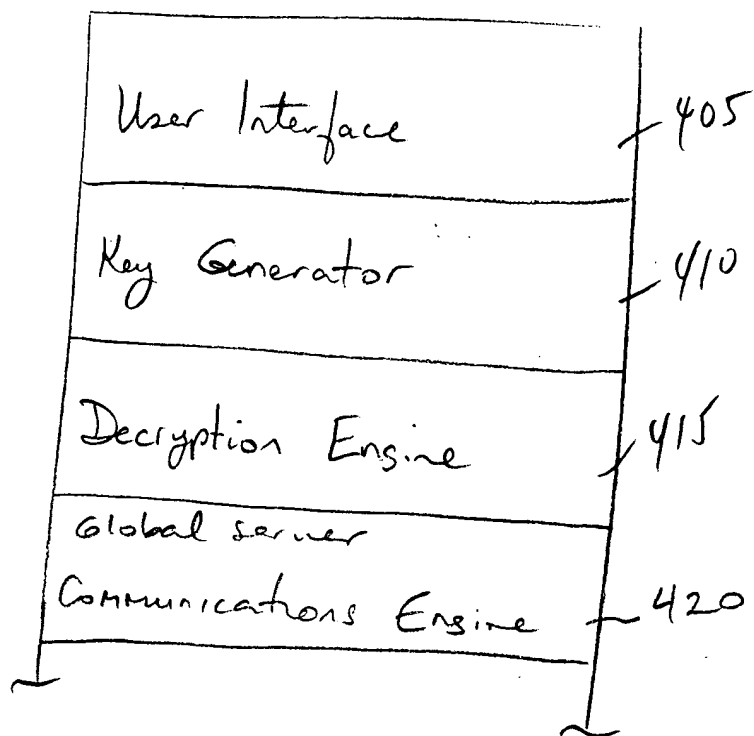 User Interface 405
Key Generator 410
Decryption Engine 415
Global server
Communications Engine 420